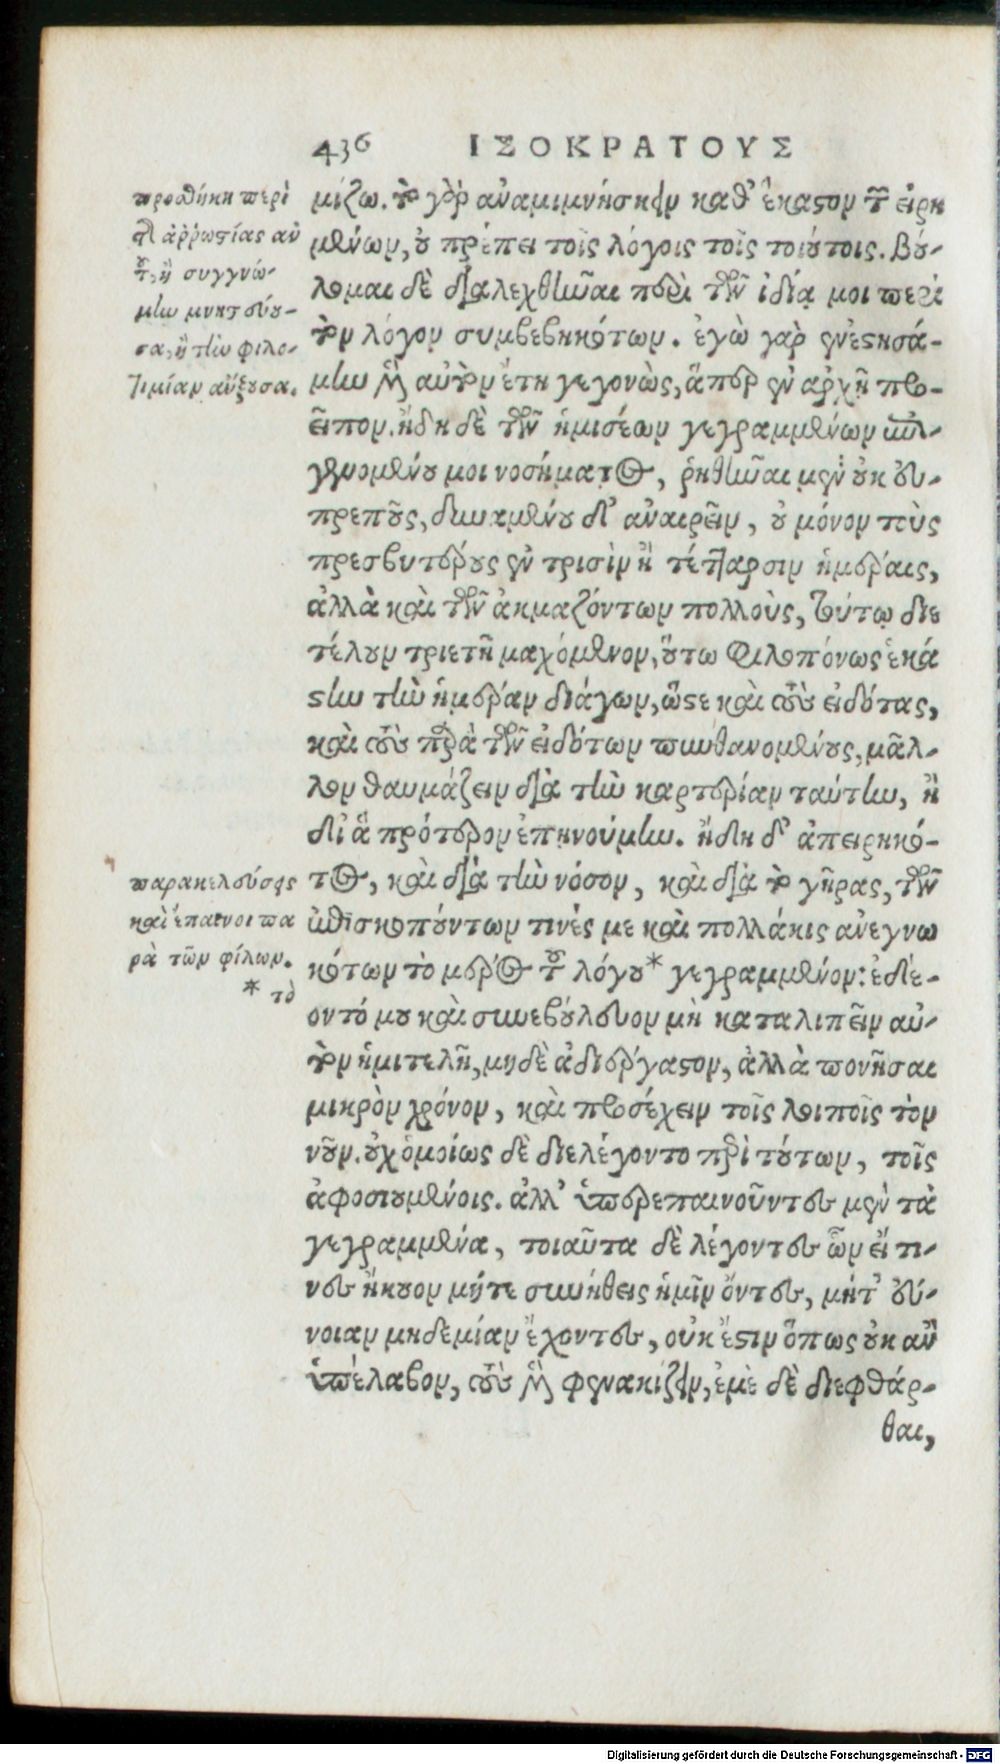 436 ΙΣΟΚΡΑΤΟΥΣ
μίζω. τὸ γὰρ ἀναμιμνήσκειν καθ' ἕκαστον τῶν εἰρη
μένων, οὐ πρέπει τοῖς λόγοις τοῖς τοιούτοις. Βού-
λομαι δὲ διαλεχθῆναι περὶ τῶν ἰδίᾳ μοι περὶ
τὸν λόγον συμβεβηκότων. ἐγὼ γὰρ ἐνεστησά-
μην μὲν αὐτὸν ἔτη γεγονὼς, ἅπερ ἐν ἀρχῇ προ-
εῖπον. ἤδη δὲ τῶν ἡμισέων γεγραμμένων ἐπι-
γενομένου μοι νοσήματος, ῥηθῆναι μὲν οὐκ εὐ-
πρεποῦς, δυναμένου δ' ἀναιρεῖν, οὐ μόνον τοὺς
πρεσβυτέρους ἐν τρισὶν ἢ τέτταρσιν ἡμέραις,
ἀλλὰ καὶ τῶν ἀκμαζόντων πολλοὺς, τούτῳ διε
τέλουν τριετῆ μαχόμενον, οὕτω φιλοπόνως ἑκά
στην τὴν ἡμέραν διάγων, ὥστε καὶ τοὺς εἰδότας,
καὶ τοὺς παρὰ τῶν εἰδότων πυνθανομένους, μᾶλ-
λον θαυμάζειν διὰ τὴν καρτερίαν ταύτην, ἢ
δι' ἃ πρότερον ἐπῃνούμην. ἤδη δ' ἀπειρηκό-
τος, καὶ διὰ τὴν νόσον, καὶ διὰ τὸ γῆρας, τῶν
ἐπισκοπούντων τινές με καὶ πολλάκις ἀνεγνω
κότων τὸ μέρος τοῦ λόγου* γεγραμμένον: ἐδέ-
οντό μου καὶ συνεβούλευον μὴ καταλιπεῖν αὐ-
τὸν ἡμιτελῆ, μηδὲ ἀδιέργαστον, ἀλλὰ πονῆσαι
μικρὸν χρόνον, καὶ προσέχειν τοῖς λοιποῖς τὸν
νοῦν. οὐχ ὁμοίως δὲ διελέγοντο περὶ τούτων, τοῖς
ἀφοσιουμένοις. ἀλλ' ὑπερεπαινοῦντες μὲν τὰ
γεγραμμένα, τοιαῦτα δὲ λέγοντες ὧν εἴ τι-
νες ἤκουον μήτε συνήθεις ἡμῖν ὄντες, μήτ' εὔ-
νοιαν μηδεμίαν ἔχοντες, οὐκ ἔστιν ὅπως οὐκ ἂν
ὑπέλαβον, τοὺς μὲν φενακίζειν, ἐμὲ δὲ διεφθάρ-
θαι,
προσθήκη περὶ
τῆς ἀῤῥωστίας αὐ
τοῦ, ἢ συγγνώ-
μην μνηστεύου-
σα, ἢ τὴν φιλο-
τιμίαν αὔξουσα.
παρακελεύσεις
καὶ ἔπαινοι πα
ρὰ τῶν φίλων.
* τὸ
Digitalisierung gefördert durch die Deutsche Forschungsgemeinschaft - DFG